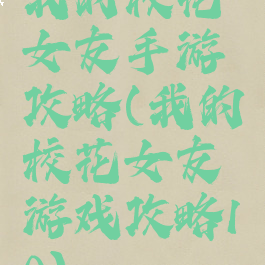 我的校花
女友手游
攻略(我的
校花女友
游戏攻略1
0)